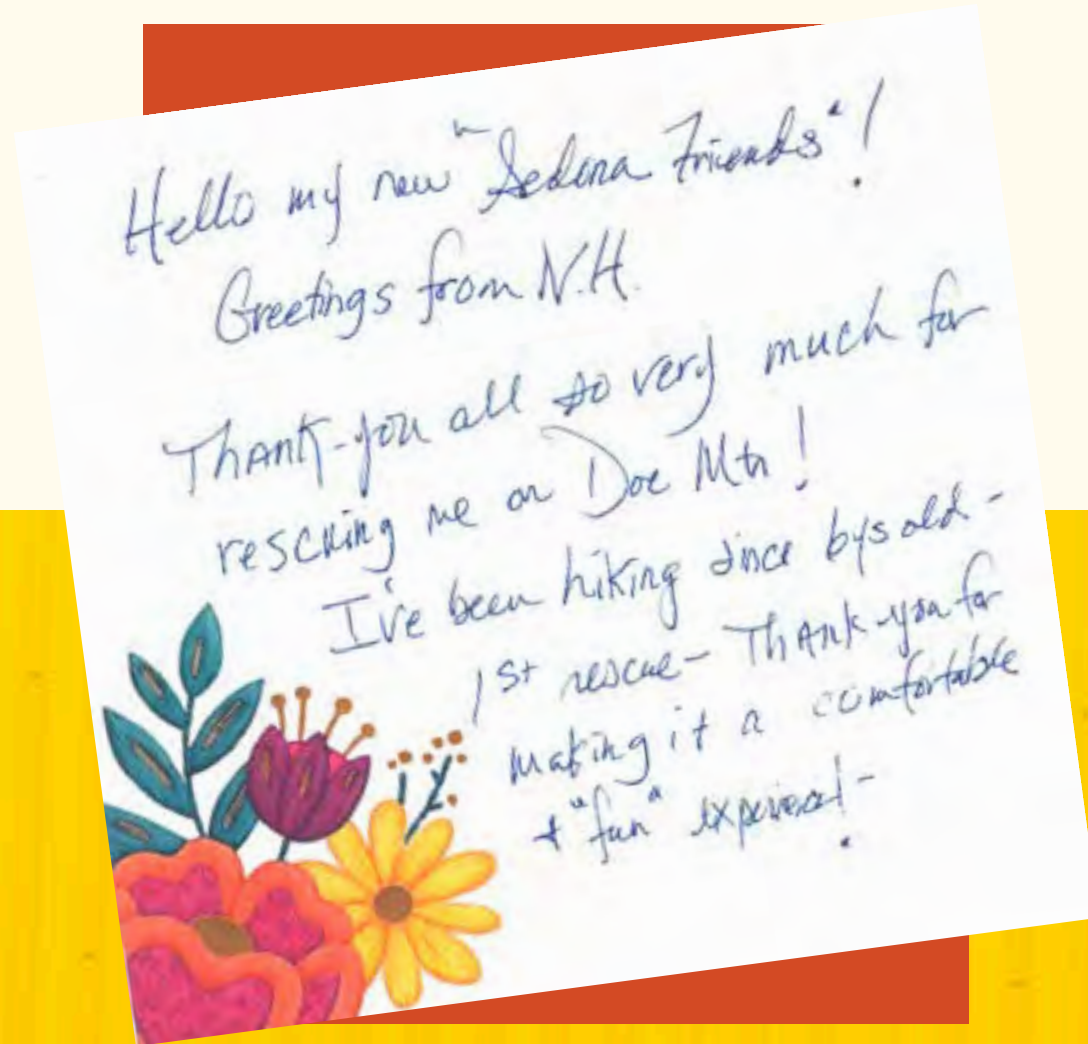 Hello my new "Sedona Friends"!
Greetings from N.H.
Thank-you all so very much for
rescuing me on Doe Mtn!
I've been hiking since 6ys old-
1st rescue- Thank-you for
making it a comfortable
+ "fun" experience!-